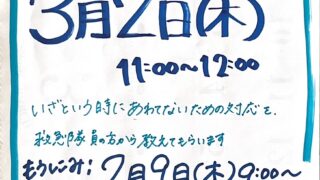 3月2日(木)
11:00~12:00
いざという時にあわてないための対応を、
救急隊員の方から教えてもらいます
もうしこみ:2月9日(木)9:00~